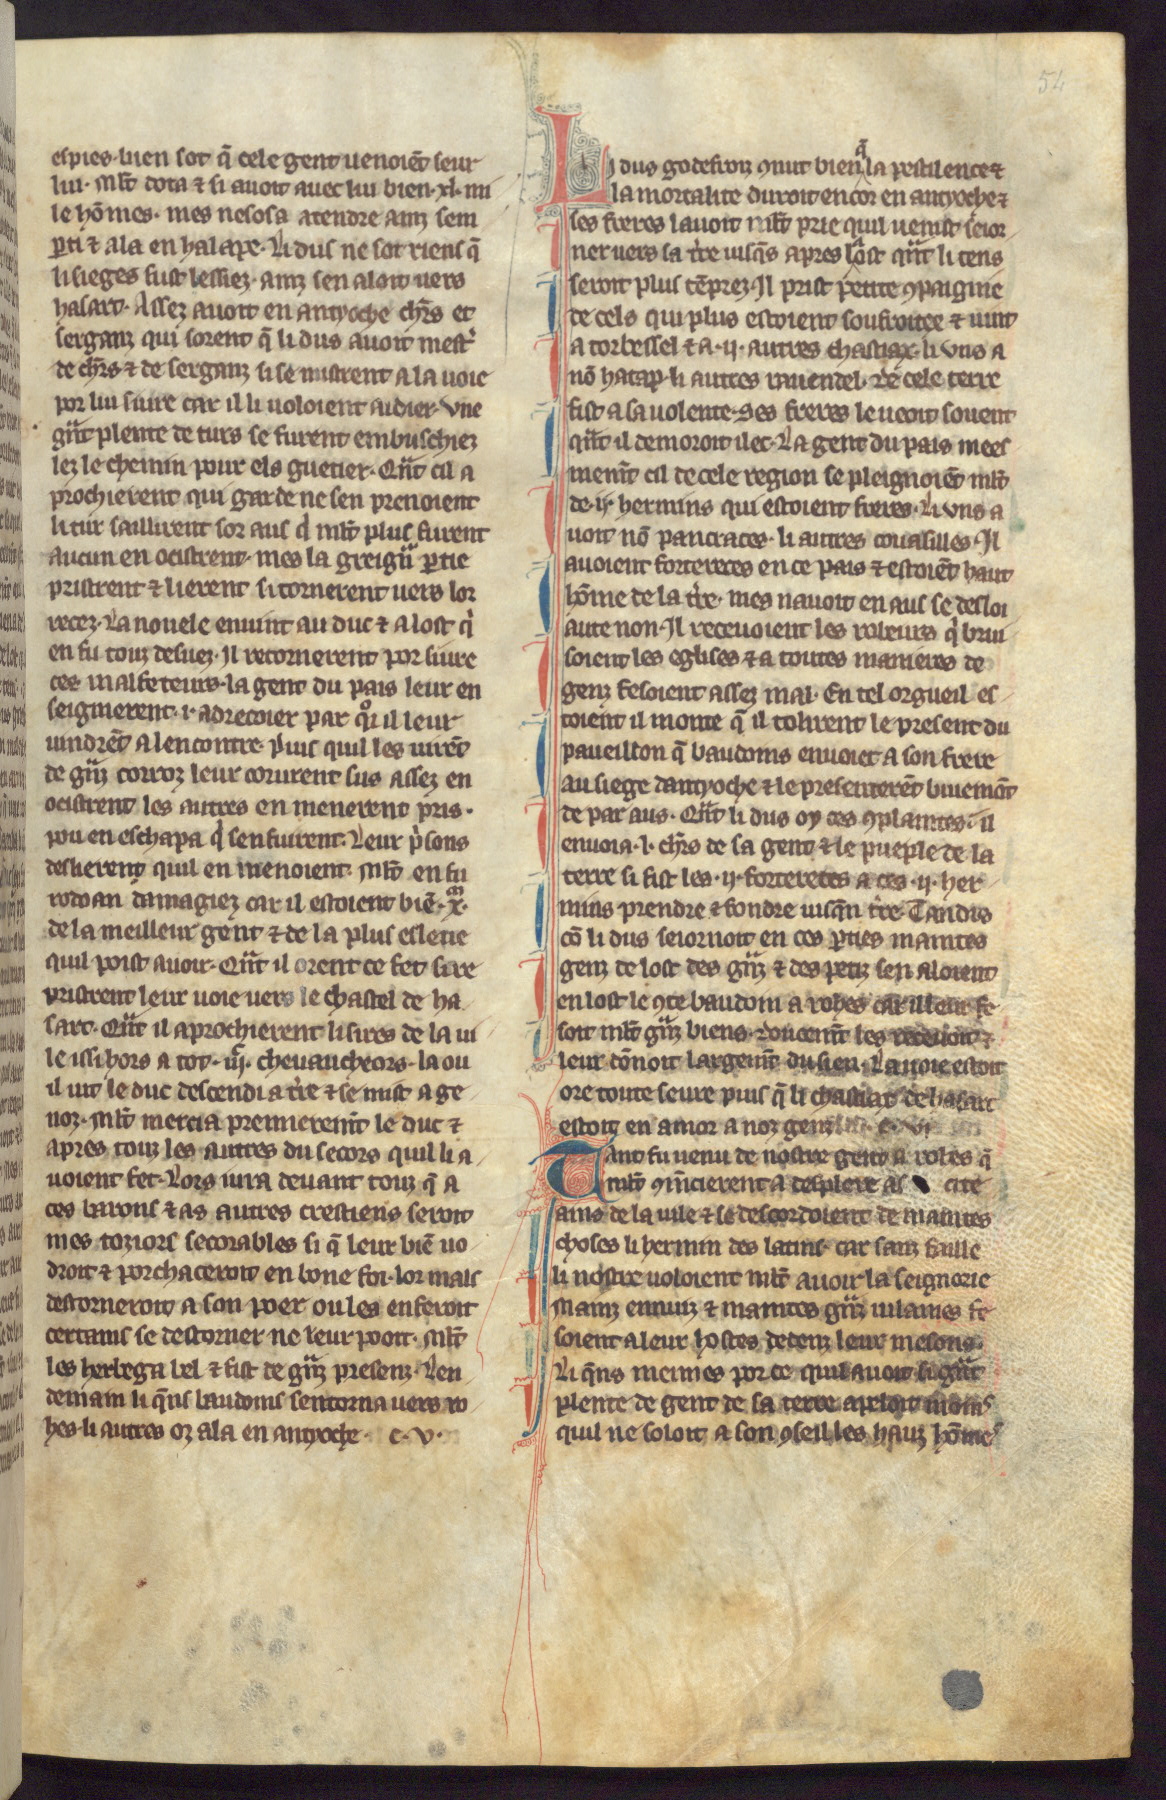 54
espies. bien sot q̃ cele gent uenoiẽt seur
lui. Ml't dota ⁊ si auoit auec lui bien .xl. mi
le hõmes. mes nesosa atendre ainz sem
p̱ti ⁊ ala en halape. Li dus ne sot riens q̃
li sieges fust lessiez. ainz sen aloit uers
hasart. Assez auoit en antyoche ch'rs et
serganz qui sorent q̃ li dus auoit mest'
de ch'rs ⁊ de serganz si se mistrent a la uoie
por lui siure car il li uoloient aidier. Vne
g̃nt plente de turs se furent embuschiez
lez le chemin pour els guetier. Qñt cil a
prochierent qui garde ne sen prenoient
li tur saillirent sor aus q̇ ml't plus furent
aucun en ocistrent. mes la greigñ p̱tie
pristrent ⁊ lierent si tornerent uers lor
recez. La nouele en uint au duc ⁊ a lost q̇
en fu touz desuez. Il retornerent por siure
ces malfeteurs. la gent du pais leur en
seignierent .i. adrecoier par q̊i il leur
uindrẽt a lencontre. Puis quil les uirẽt
de g̃nz corroz leur corurent sus assez en
ocistrent les autres en menerent pris.
pou en eschapa q̇ sen fuirent. Leur p̓sons
deslierent quil en menoient. Ml't en fu
rodoan damagiez car il estoient biẽ .x.ͫ
de la meilleur gent ⁊ de la plus esleue
quil poist auoir. Qñt il orent ce fet si re
pristrent leur uoie uers le chastel de ha
sart. Qñt il aprochierent li sires de la ui
le issi hors a tot .iiiͨ. cheuaucheors. la ou
il uit le duc descendi a t're ⁊ se mist a ge
noz. Ml't mercia premierem̃t le duc ⁊
apres touz les autres du secors quil li a
uoient fet. Lors iura deuant touz q̃ a
ces barons ⁊ as autres crestiens seroit
mes toziors secorables si q̃ leur biẽ uo
droit ⁊ porchaceroit en bone foi. lor mals
destorneroit a son poer ou les en feroit
certains se destorner ne leur pooit. Ml't
les herbega bel ⁊ fist de g̃nz presenz. Len
demain li q̃ns baudoins sentorna uers ro
hes. li autres oz ala en antyoche. c. v.
Li dus godefroiz ꝯnut bien q̃ la pestilence ⁊
la mortalite duroit encor en antyoche ⁊
ses freres lauoit ml't prie quil uenist seior
ner uers sa t're iusq̃s apres laost qñt li tens
seroit plus tẽprez. Il prist petite ꝯpaignie
de cels qui plus estoient soufroitex ⁊ uint
a torbessel ⁊ a .ii. autres chastiax. li vns a
nõ hatap. li autres rauendel. De cele terre
fist a sa volente. Ses freres le ueoit souent
qñt il demoroit ilec. La gent du pais mees
mem̃t cil de cele region se pleignoiẽt ml't
de .ii. hermins qui estoient freres. Li vns a
uoit nõ pancraces. li autres couasilles. Il
auoient fortereces en ce pais ⁊ estoiẽt haut
hõme de la t're. mes nauoit en aus se desloi
aute non. Il receuoient les robeurs q̇ brui
soient les eglises ⁊ a toutes manieres de
genz fesoient assez mal. En tel orgueil es
toient il monte q̃ il tolirent le present du
paueillon q̃ baudoins enuoiet a son frere
au siege dantyoche ⁊ le presenterẽt buiemõt
de par aus. Qñt li dus oy ces ꝯplaintes. il
enuoia .l. ch'rs de sa gent ⁊ le pueple de la
terre si fist les .ii. forteretes a ces .ii. her
mins prendre ⁊ fondre iusq̃n t're. Tandis
cõ li dus seiornoit en ces p̱ties maintes
genz de lost des g̃nz ⁊ des petiz sen aloient
en lost le ꝯte baudoin a rohes car il leur fe
soit ml't g̃nz biens. doucem̃t les receuoit ⁊
leur dõnoit largem̃t du sien. La uoie estoit
ore toute seure puis q̃ li chastiax de hasart
estoit en amor a noz genz c. vi
Tant fu uenu de nostre gent a rohes q̃
ml't ꝯm̃cierent a desplere as cite
ains de la uile ⁊ se descordoient de maintes
choses li hermin des latins. car sanz faille
li nostre uoloient ml't auoir la seignorie
Mainz ennuiz ⁊ maintes g̃nz uilanies fe
soient a leur hostes dedenz leur mesons.
Li q̃ns meimes por ce quil auoit si g̃nt
plente de gent de sa terre apeloit moins
quil ne soloit a son ꝯseil les hauz hõmes